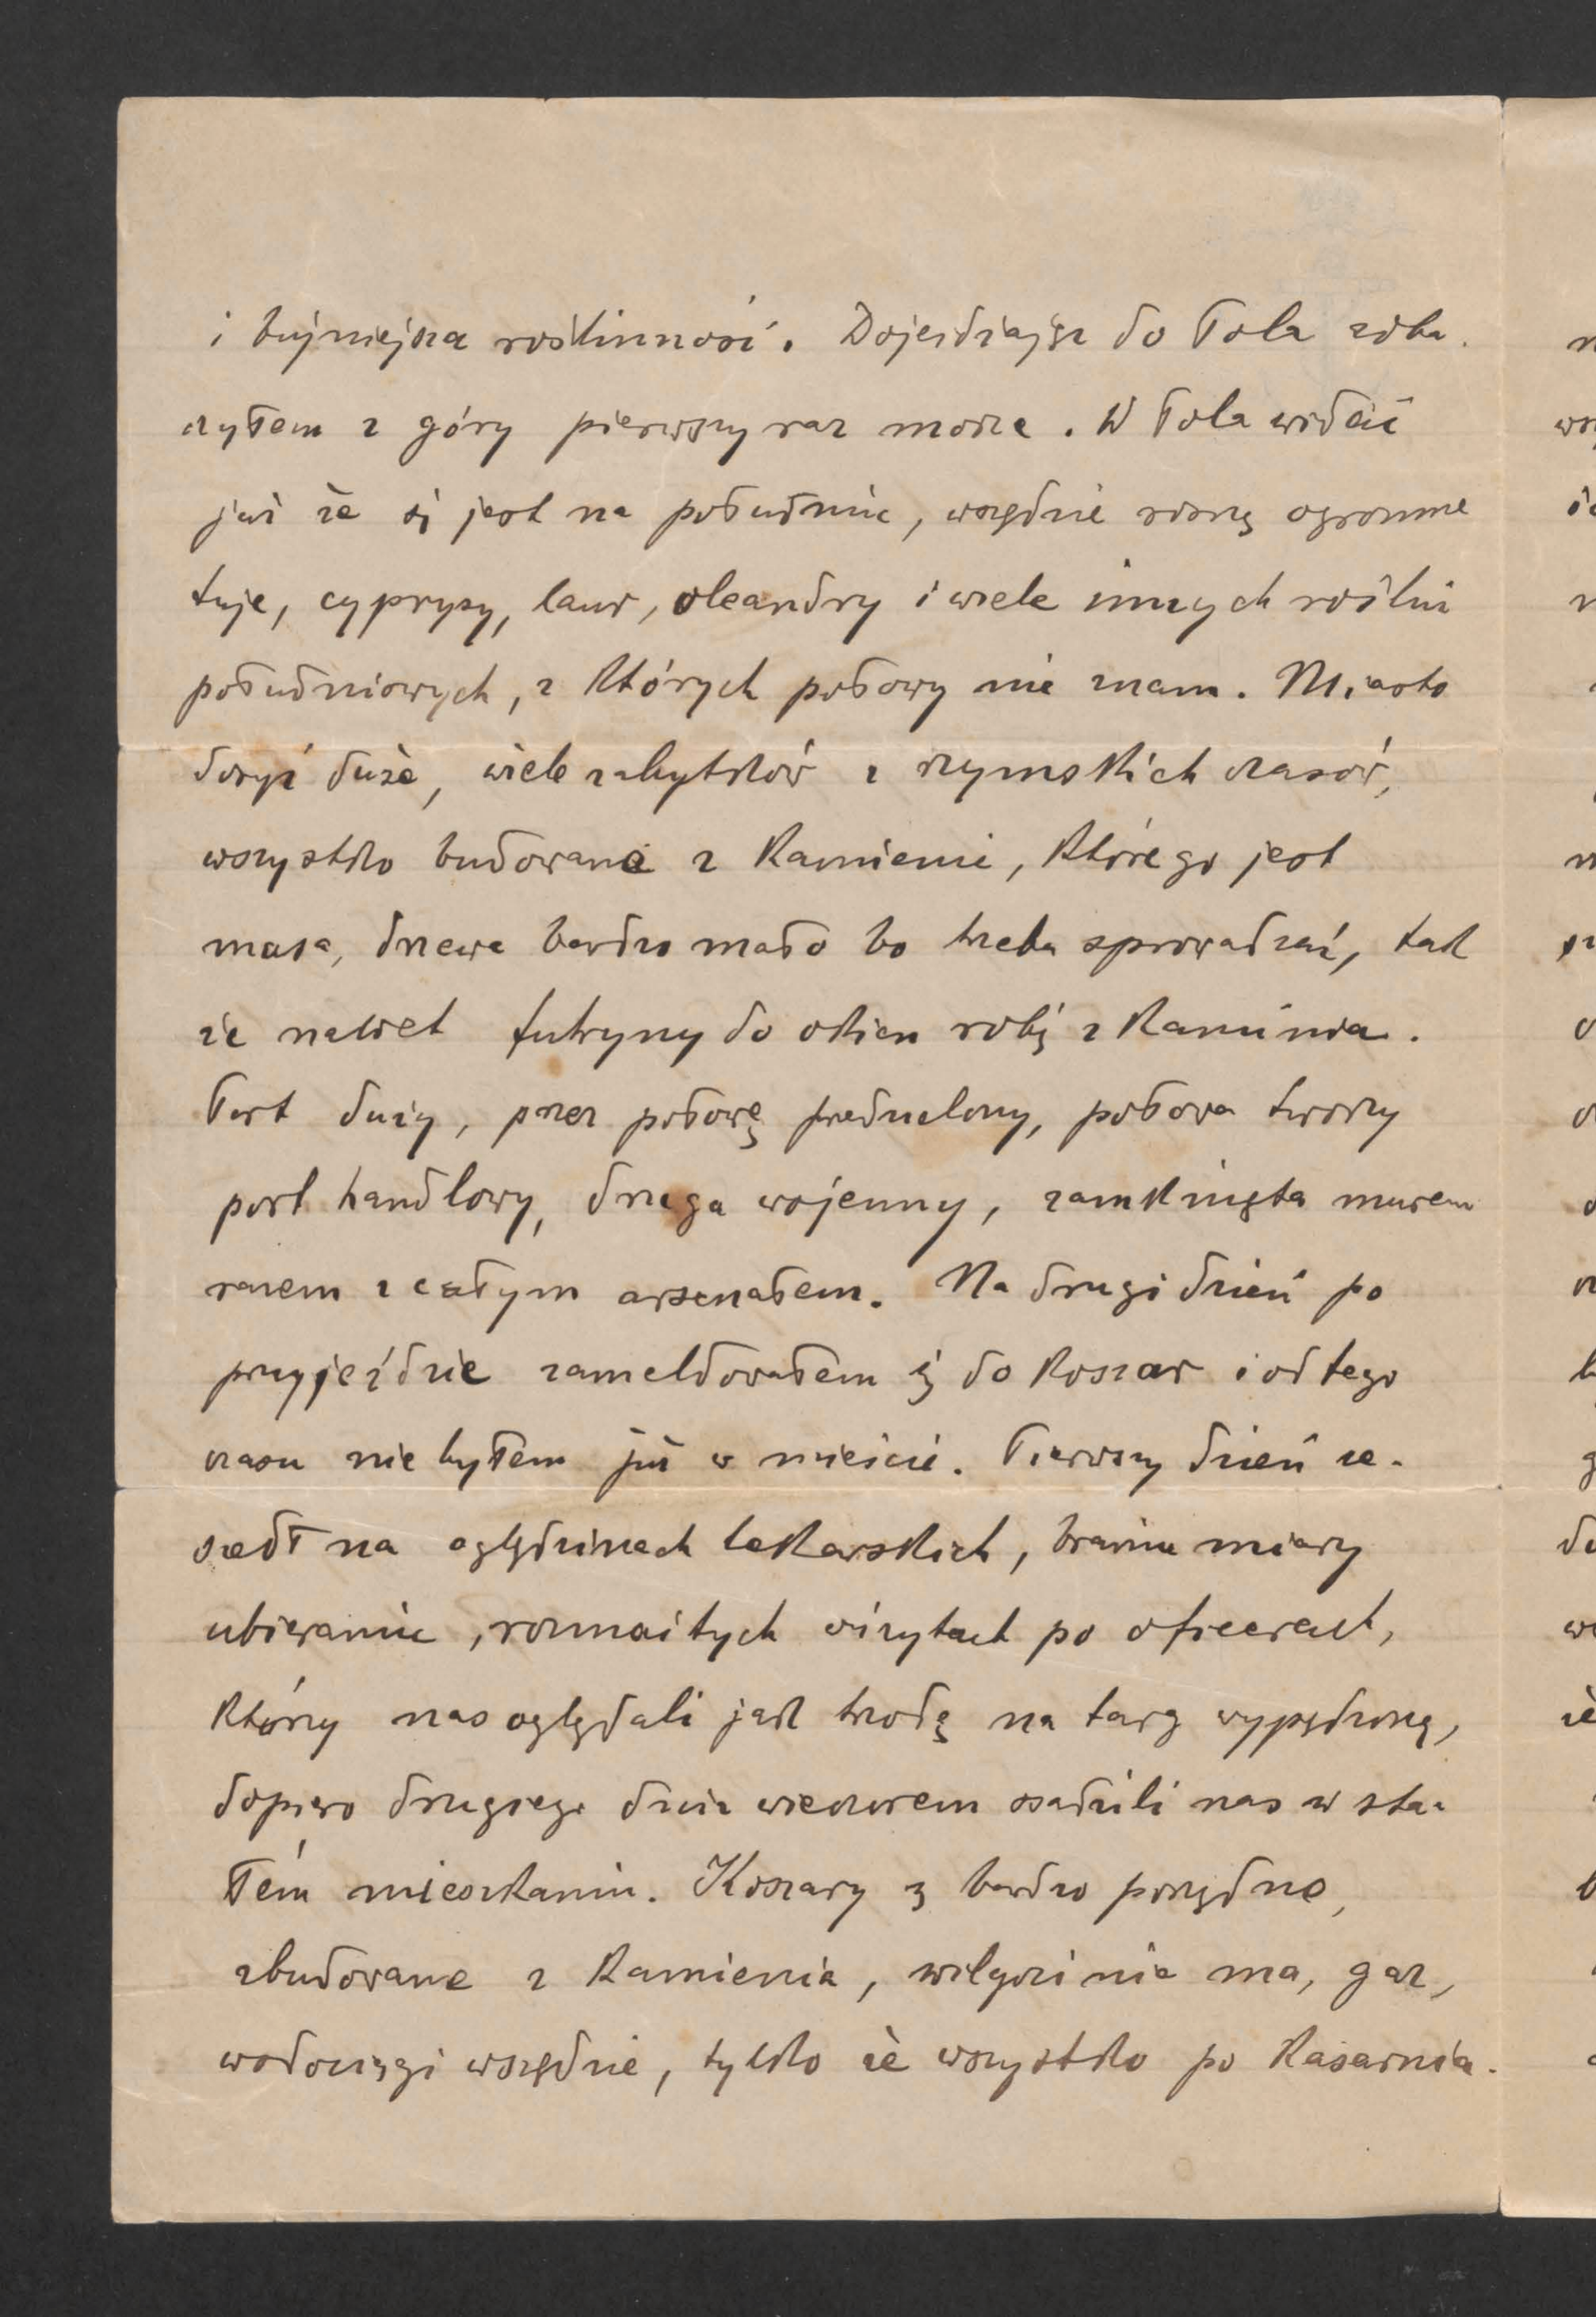 i bujniejsza roślinność. Dojeżdżając do Pola zoba-
czyłem z góry pierwszy raz morze. W Pola widać
już że się jest na południu, wszędzie rosną ogromne
tuje, cyprysy, laur, oleandry i wiele innych roślin
południowych, z których połowy nie znam. Miasto
dosyć duże, wiele zabytków z rzymskich czasów,
wszystko budowane z kamieni, którego jest
masa, drzewa bardzo mało bo trzeba sprowadzać, tak
że nawet futryny do okien robią z kamienia.
Port duży, przez połowę przedzielony, połowa tworzy
port handlowy, druga wojenny, zamknięta murem
razem z całym arsenałem. Na drugi dzień po
przyjeździe zameldowałem się do koszar i od tego
czasu nie byłem już w mieście. Pierwszy dzień ze-
szedł na oględzinach lekarskich, braniu miary
ubieraniu, rozmaitych wizytach po oficerach,
którzy nas oglądali jak trzodę na targ wypędzoną,
dopiero drugiego dnia wieczorem osadzili nas w sta-
łém mieszkaniu. Koszary są bardzo porządne,
zbudowane z kamienia, wilgoci nie ma, gaz,
wodociągi wszędzie, tylko że wszystko po kasarnia-